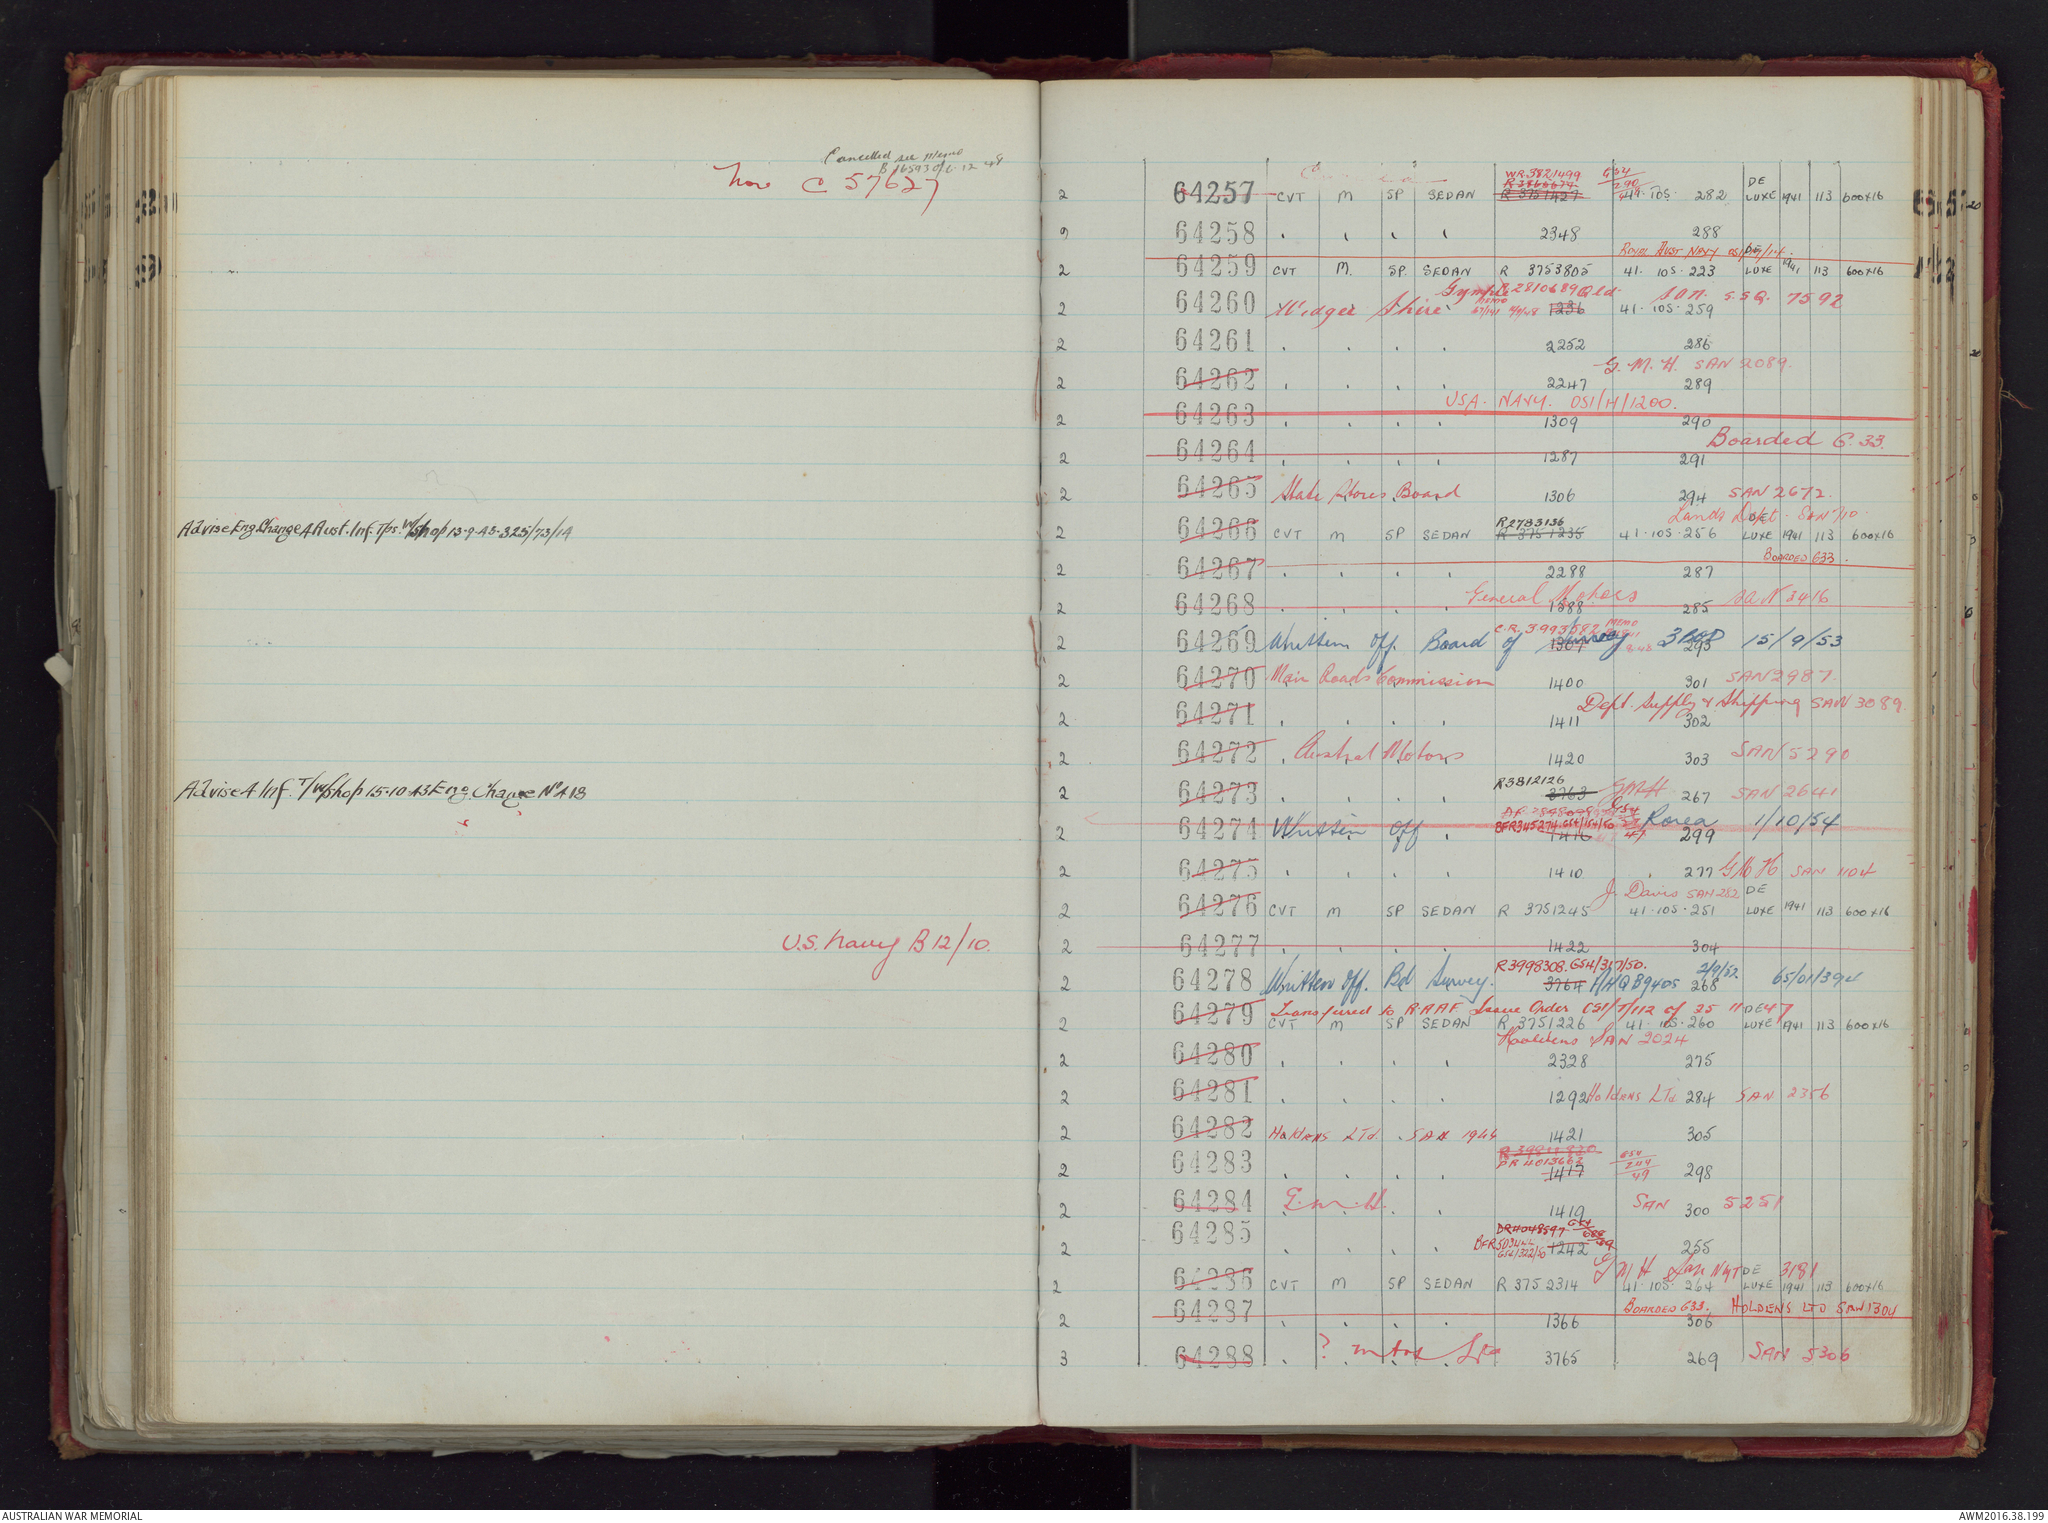 Cancelled see Memo
Now C 57627
Advise Eng. Change 4 Aust. Inf. Tps. W/shop 13-9-43-325/73/14
Advise 4 Inf. T/W/Shop 15-10-43 Eng. Change No 418
U.S. Navy B 12/10.
WR.3821499
2 64257 CVT M SP SEDAN R 3751427 419.105. 282 DE LUXE 1941 113 600x16
2 64258 2348 288
ROYAL AUST NAVY
2 64259 CVT M. SP. SEDAN R 3753805 41. 105. 223 LUXE 1941 113 600x16
Gympie R2810689 Qld. SAN. S.SQ. 7592
2 64260 Widgee Shire 1236 41. 105. 259
2 64261 2252 286
G. M. H. SAN 2089.
2 64262 2247 289
USA. NAVY. OSI/H/1200.
2 64263 1309 290
Boarded G.33.
2 64264 1287 291
2 64265 State Stores Board 1306 294 SAN 2672.
R2783136 Lands Dept. SAN 710.
2 64266 CVT M SP SEDAN R 3751235 41.105.256 LUXE 1941 113 600x16
BOARDED G33.
2 64267 2288 287
General Motors SAN 3416
2 64268 1388 285
C.R. 3993582 MEMO
2 64269 Written Off. Board of Survey 1307 293 15/9/53
2 64270 Main Roads Commission 1400 301 SAN 2987.
Dept. Supply & Shipping SAN 3089.
2 64271 1411 302
2 64272 Austral Motors 1420 303 SAN 5290
R3812126 GMH
2 64273 3763 267 SAN 2641
BFR345274.G54/154/50
2 64274 Written off 1416 Korea 299 1/10/54
2 64275 1410 277 GMH SAN 1104
J. Davis SAN 282 DE
2 64276 CVT M SP SEDAN R 3751245 41.105.251 LUXE 1941 113 600x16
2 64277 1422 304
R3998308.G54/317/50.
2 64278 Written Off. Bd Survey. 3764 AHQ B9405 268 2/9/52 65/01/394
Transferred to R.A.A.F Issue Order CSI/T/112 of 25 11 47 DE
2 64279 CVT M SP SEDAN R 3751226 41.105.260 LUXE 1941 113 600x16
Holdens SAN 2024
2 64280 2328 275
2 64281 1292 Holdens LTd 284 SAN 2356
2 64282 Holdens LTd. SAN 1944 1421 305
DR 4013662 G54 244 49
2 64283 1417 298
2 64284 G.M.H. 1419 SAN 300 5251
DR4048597 G54
BFR503444
G54/322/50
2 64285 1242 255
GMH San No DE 3181
2 64286 CVT M SP SEDAN R 3752314 41.105.264 LUXE 1941 113 600x16
BOARDED G33. HOLDENS LTD SAN 1304
2 64287 1366 306
3 64288 ? 3765 269 SAN 5306
AUSTRALIAN WAR MEMORIAL
AWM2016.38.199